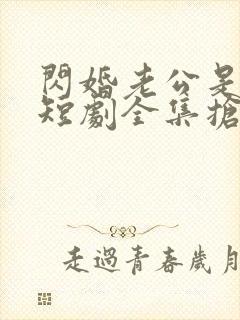 閃婚老公是
短劇全集搶
走過青春歲月